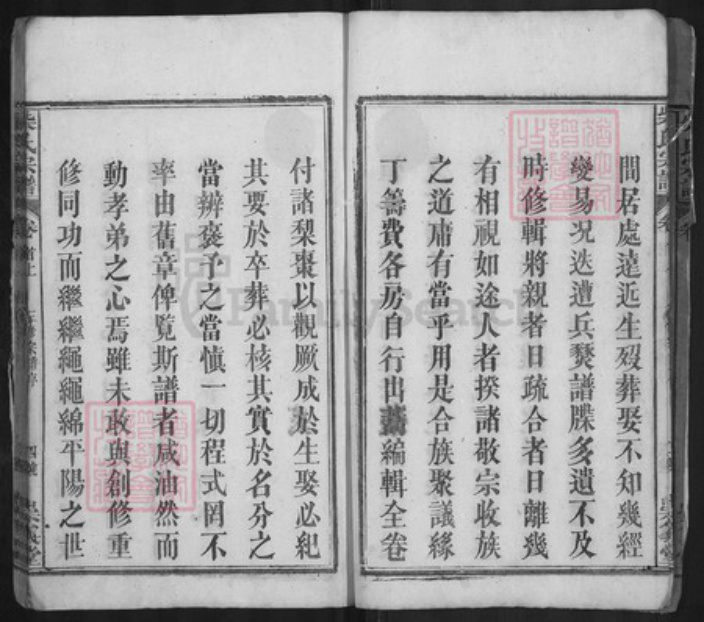 間居處遠近生歿葬娶不知幾經
變易況迭遭兵燹譜牒多遺不及
時修輯將親者日疏合者日離幾
有相視如途人者揆諸敬宗收族
之道庸有當乎用是合族聚議緣
丁籌費各房自行出 編輯全卷
付諸梨棗以觀厥成於生娶必紀
其要於卒葬必核其實於名分之
當辨褒予之當慎一切程式罔不
率由舊章俾覧斯譜者咸油然而
動孝弟之心焉雖未敢與創修重
修同功而繼繼繩繩綿平陽之世
柴氏宗譜
卷首上
FamilySearch